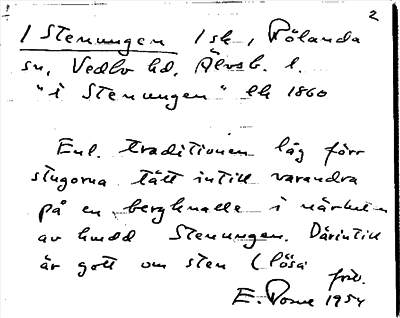 2
1 Stenungen 1 sk, Rölanda
sn, Vedbo hd, Älvsb. l.
"i Stenungen" hk 1860
Enl. traditionen låg förr
stugorna tätt intill varandra
på en bergknalle i närheten
av hmdd Stenungen. Därintill
är gott om sten (lösa
friv.
E. 1954